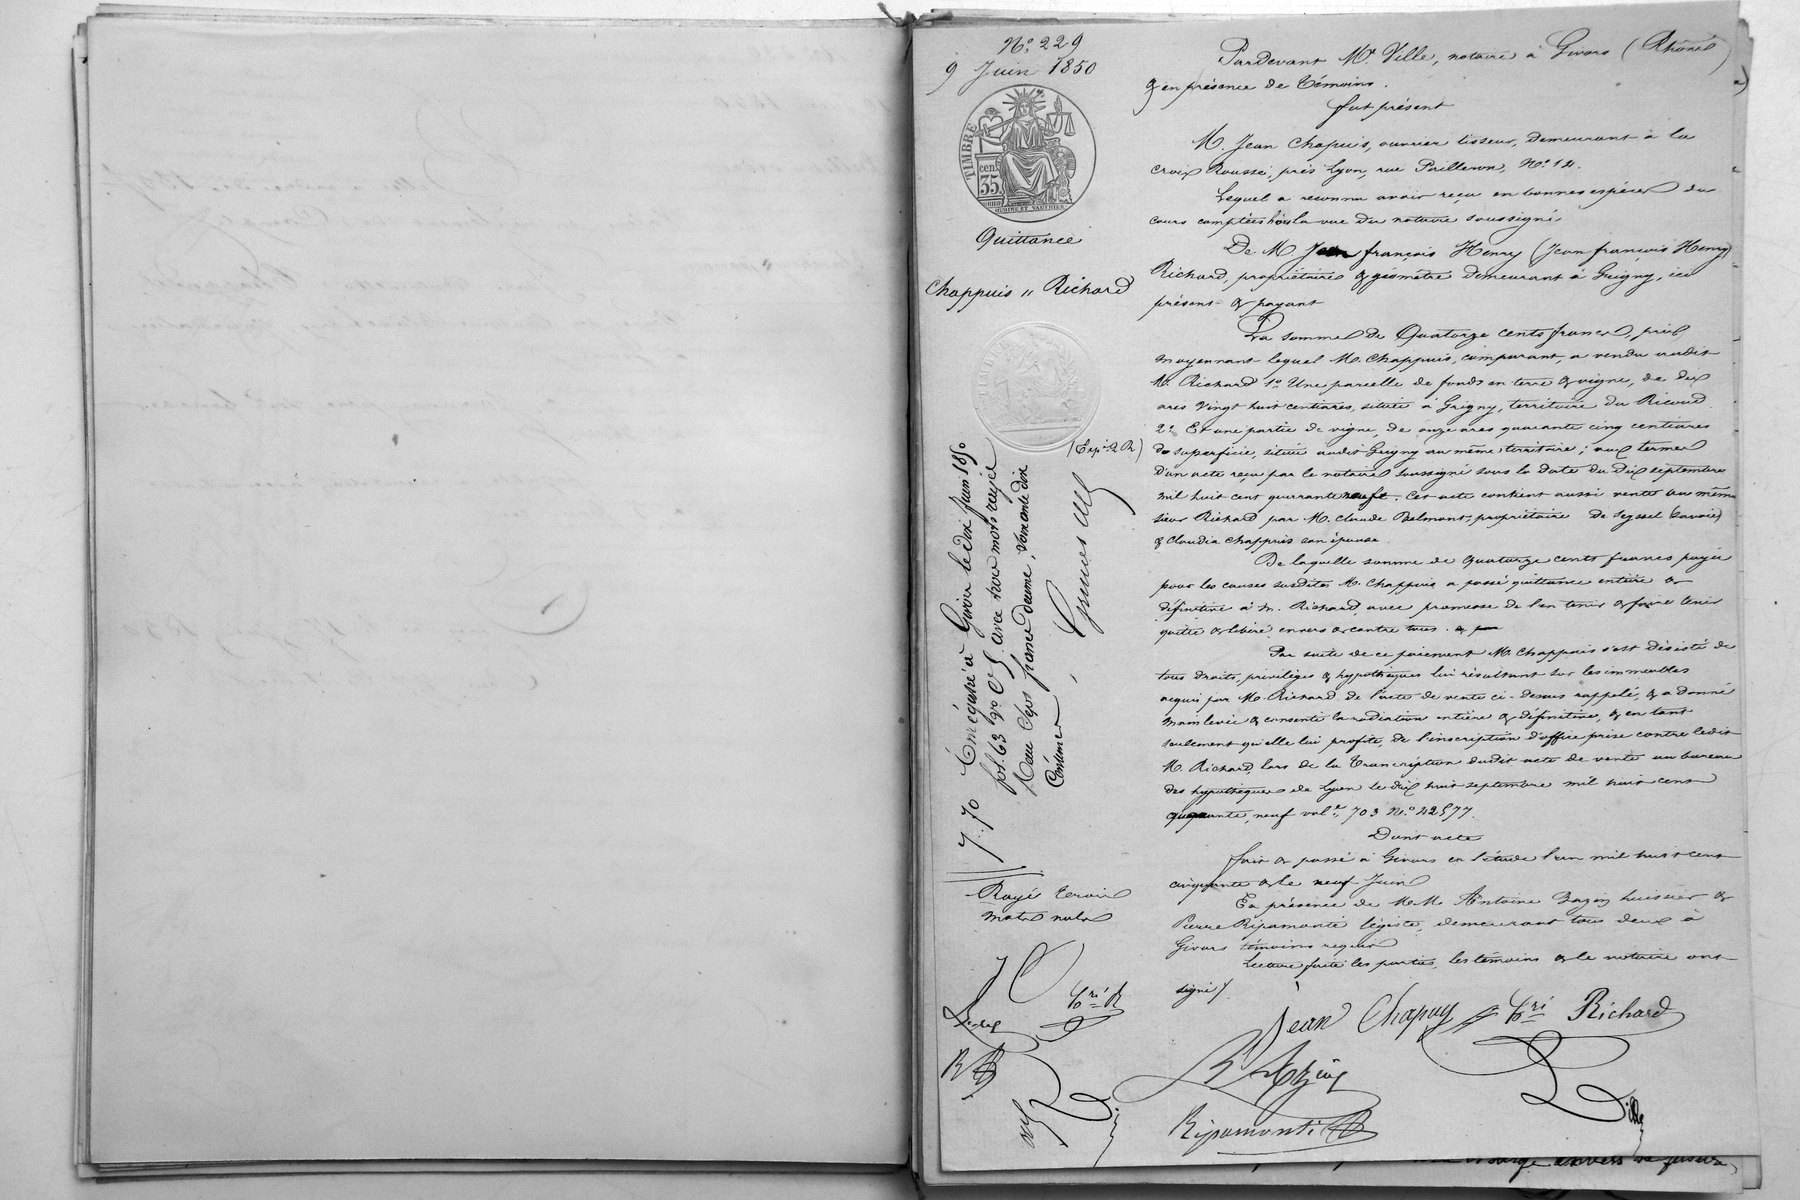 N.o 229
9 Juin 1850
TIMBRE
35 cen.
OUDINÉ ET VAUTHIER
Quittance
Chappuis " Richard
(Expé. R)
Enregistré à Givors le dix juin 1850
fol. 63 v.o C. 5. avec trois mots rayés
Reçu sept francs
7.70
Rayé trois
mots nuls
JC
hri R
Pardevant Me Ville, notaire à Givors (Rhône)
& en présence de témoins.
fut présent
M. Jean Chapuis, ouvrier tisseur, demeurant à la
Croix Rousse, près Lyon, rue Pailleron, No 12.
Lequel a reconnu avoir reçu en bonnes espèces du
cours comptées hors la vue du notaire soussigné,
De M Jean françois Henry (Jean françois Henry)
Richard, propriétaire & géomètre demeurant à Grigny, ici
présent & payant
La somme de Quatorze cents francs, prix
moyennant lequel M. Chappuis, comparant, a vendu audit
M. Richard 1o Une parcelle de fonds en terre & vigne, de dix
ares vingt huit centiares, située à Grigny, territoire du
2o Et une partie de vigne, de onze ares quarante cinq centiares
de superficie, située audit Grigny au même territoire; aux termes
d'un acte reçu par le notaire soussigné sous la date du dix septembre
mil huit cent quarante neuf. Cet acte contient aussi vente au même
sieur Richard par M. Claude Belmont, propriétaire de Seyssel (Savoie)
& Claudia Chappuis son épouse.
De laquelle somme de quatorze cents francs payée
pour les causes susdites M. Chappuis a passé quittance entière &
définitive à M. Richard avec promesse de l'en tenir & faire tenir
quitte & libéré envers & contre tous.
Par suite de ce paiement M. Chappuis s'est désisté de
tous droits, privilèges & hypothèques lui résultant sur les immeubles
acquis par M. Richard de l'acte de vente ci-dessus rappelé, & a donné
main levée & consenti la radiation entière & définitive, & en tant
seulement qu'elle lui profite, de l'inscription d'office prise contre ledit
M. Richard, lors de la transcription dudit acte de vente au bureau
des hypothèques de Lyon le dix huit septembre mil huit cent
quarante, neuf vol.e 703 No 42577.
Dont acte
fait & passé à Givors en l'étude l'an mil huit cent
cinquante & le neuf Juin
En présence de M.M. Antoine huissier &
Pierre Ripamonti légiste, demeurant tous deux à
Givors témoins requis
Lecture faite les parties, les témoins & le notaire ont
signé
Jean Chapuy
hri Richard
Ripamonti
Ville